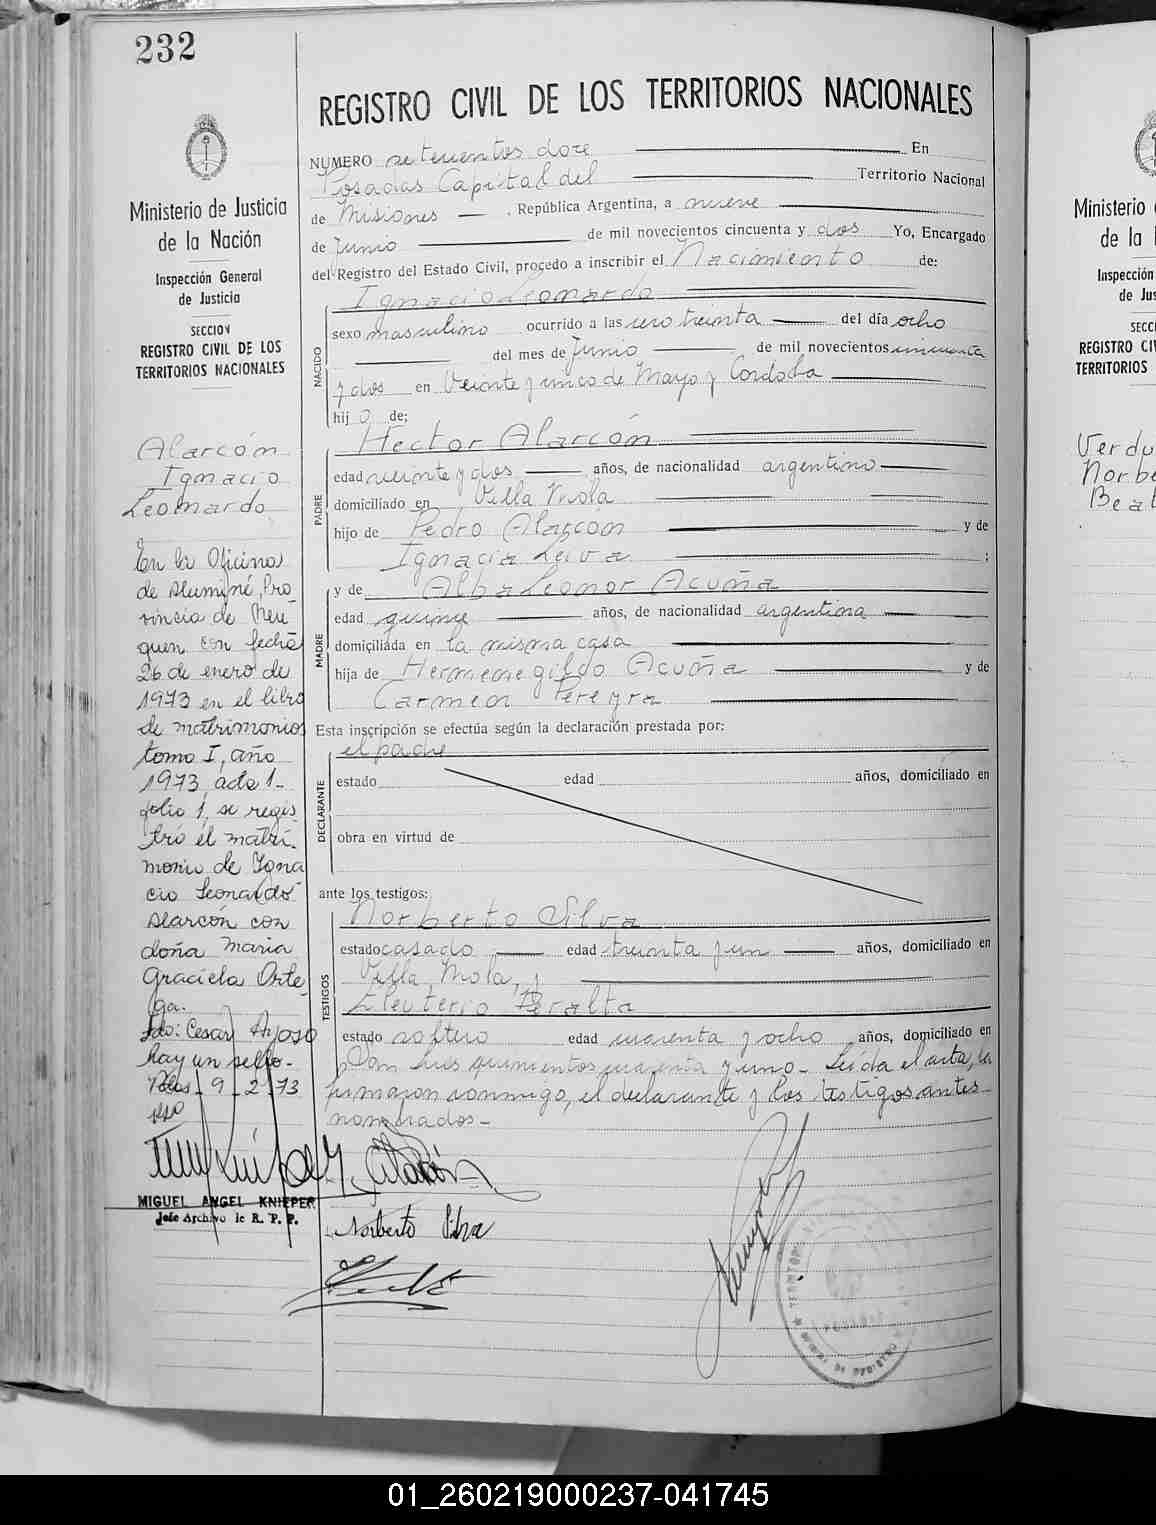 232
REGISTRO CIVIL DE LOS TERRITORIOS NACIONALES
Ministerio de Justicia
de la Nación
Inspección General
de Justicia
SECCION
REGISTRO CIVIL DE LOS
TERRITORIOS NACIONALES
Alarcón
Ignacio
Leonardo
En la Oficina
de Aluminé, Pro
vincia de Neu-
quen con fecha
26 de enero de
1973 en el libro
de matrimonios
tomo I, año
1973, acta 1-
folio 1, se regis
tró el matri-
monio de Igna
cio Leonardo
Alarcón con
doña Maria
Graciela Orte-
ga.
Fdo: Cesar Ayoso
hay un sello-
9-2-73
MIGUEL ANGEL KNIEPER
Jefe Archivo de R. P. P.
NUMERO setecientos doce En
Posadas Capital del Territorio Nacional
de Misiones , República Argentina, a nueve
de Junio de mil novecientos cincuenta y dos Yo, Encargado
del Registro del Estado Civil, procedo a inscribir el Nacimiento de:
NACIDO
Ignacio Leonardo
sexo masculino ocurrido a las cero treinta del día ocho
del mes de Junio de mil novecientos cincuenta
y dos en Veinte y cinco de Mayo y Cordoba
hij o de;
PADRE
Hector Alarcón
edad veinte y dos años, de nacionalidad argentino
domiciliado en Villa Mola
hijo de Pedro Alarcón y de
Ignacia Leiva ;
MADRE
y de Alba Leonor Acuña
edad quince años, de nacionalidad argentina
domiciliada en la misma casa
hija de Hermenegildo Acuña y de
Carmen Pereyra
Esta inscripción se efectúa según la declaración prestada por:
DECLARANTE
el padre
estado edad años, domiciliado en
obra en virtud de
ante los testigos:
TESTIGOS
Norberto Silva
estado casado edad treinta y un años, domiciliado en
Villa Mola, y
Eleuterio Peralta
estado soltero edad cuarenta y ocho años, domiciliado en
San Luis quinientos cuarenta y uno- Leída el acta, la
firmaron conmigo, el declarante y los testigos antes
nombrados-
Norberto Silva
Ministerio
de la
Inspección
de Jus
SECC
REGISTRO CI
TERRITORIOS
Verdu
Norbe
Beat
01_260219000237-041745